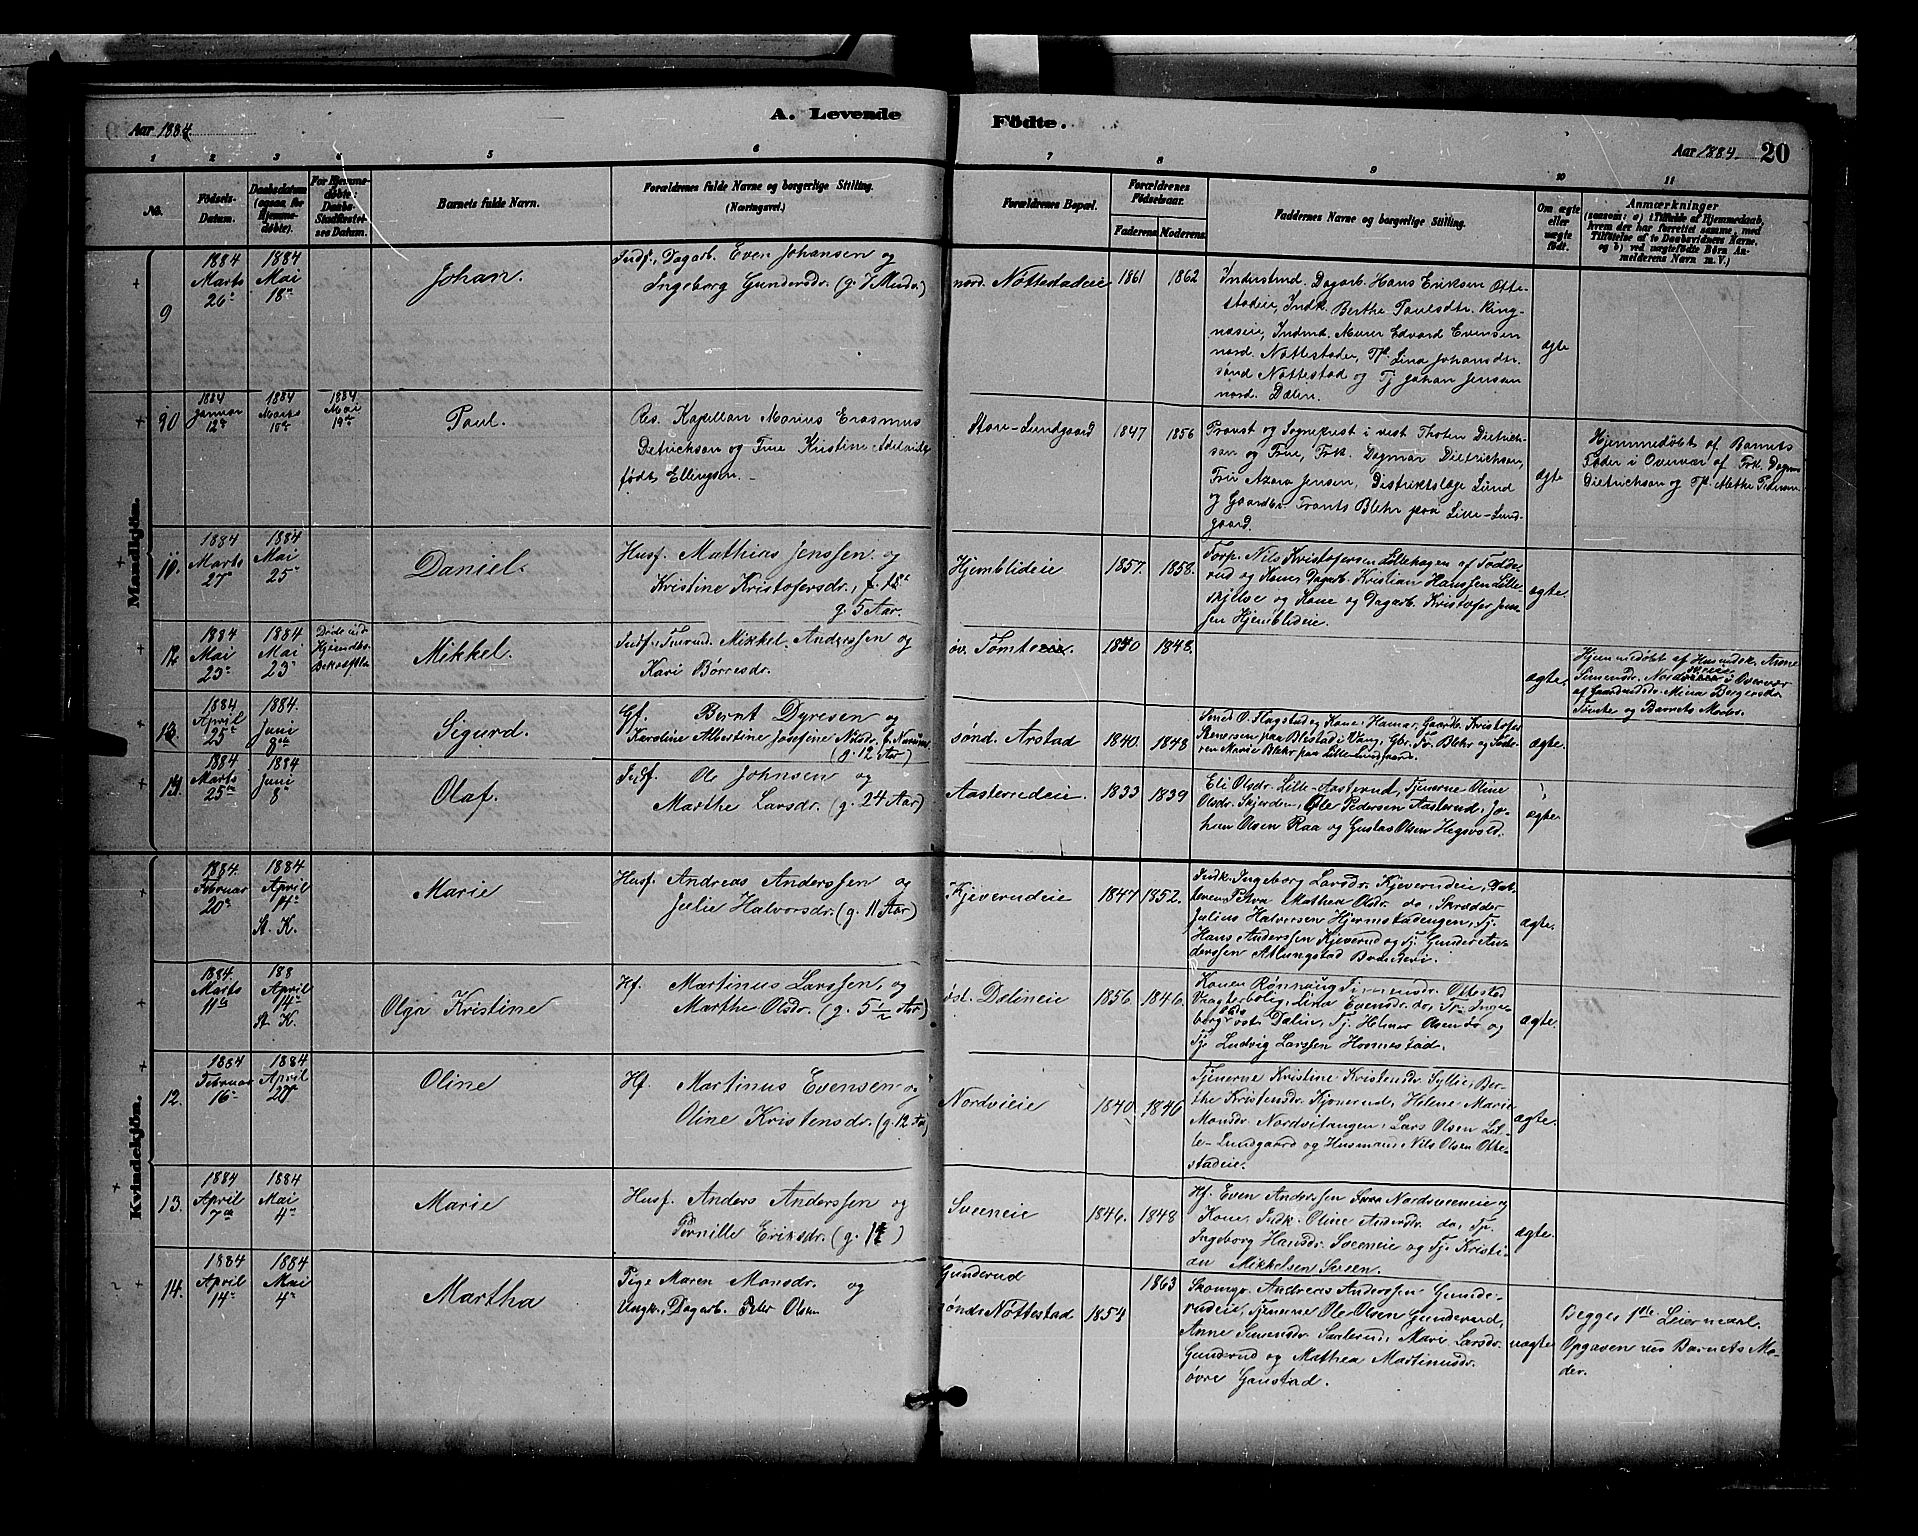 Aar 1884
A. Levende
Födte.
Aar 1884.
20
1 2 3 4 5 6 7 8 9 10 11
No.
Födsels-
Datum.
Daabsdatum
(ogsaa for
Hjemme-
døbte).
For Hjemme-
døbte:
Daabs-
Stadfæstel-
ses Datum.
Barnets fulde Navn.
Forældrenes fulde Navne og borgerlige Stilling.
(Næringsvei.)
Forældrenes Bopæl.
Forældrenes
Födselsaar.
Faderens.
Moderens.
Faddernes Navne og borgerlige Stilling.
Om ægte
eller
uægte
födt.
Anmærkninger
(saasom: a) i Tilfælde af Hjemmedaab,
hvem der har forrettet samme, med
Tilføielse af to Daabsvidners Navne,
og b) ved uægtefödte Børn An-
melderens Navn m. V.)
Mandkjön.
9
1884
Marts
26de
1884
Mai
18de
Johan.
Indf., Dagarb. Even Johansen og
Ingeborg Gundersdr. (g.
nord. Nöttestadeie
1861
1862
Inderstmd. Dagarb. Hans Eriksen Otte-
stadeie, Indk. Berthe Paulsdtr. Ring-
næseie, Indmd. Murer Edvard Evensen
nord. Nöttestadeie, Tp. Lina Johansdtr.
sönd. Nöttestad og Tj. Johan Jensen
nord. Dælin.
ægte
10
1884
Januar
12te
1884
Marts
10de
1884.
Mai
19de
Paul.
Res. Kapellan Marius Erasmus
Dietrichson og Frue Kristine
födt Ellingsen.
Store-Lundgaard
1847
1856
Provst og Sogneprest i vest Thoten Dietrich-
son og Frue, Frk. Dagmar Dietrichson,
Fru Azora Jensen, Distriktslæge Lund
og Gaardbr. Frants Blehr paa Lille-Lund-
gaard.
ægte
Hjemmedöbt af Barnets
Fader i Overvær af Frk. Dagmar
Dietrichson og Tp. Mathe
11.
1884
Marts
27de
1884
Mai
25de
Daniel.
Husf. Mathias Jenssen og
Kristine Kristofersdr.,
g. 5 Aar.
Hjemblideie
1857.
1858.
Torp. Nils Kristofersen Lillehagen af Fodde-
rud og Kone, Dagarb. Kristian Hanssen Lille-
skjelve og Kone og Dagarb. Kristofer Jens-
sen Hjemblideie.
ægte.
12
1884
Mai
23de
1884
Mai
23de
Döde ind.
Hjemdbs.
Bekræftlse
Mikkel.
Indf., Mikkel Anderssen og
Kari Börresdr.
öv. Tomteeie.
1840
1848.
ægte.
Hjemmedöbt af Husmdsk. Anne
Simensdr. i Overvær
af Gaardmdsdr. Mina Bergersdr.
Tomte og Barnets Moder.
13
1884
April
25de
1884.
Juni
8de
Sigurd.
Gf. Bernt Dyresen og
Karoline Albertine Josefine
(g. 12 Aar)
sönd. Arstad
1840.
1848
Smed O. Flagstad og Kone, Hamar, Gaardbr. Kristofer
Stenersen paa Blestad i Vang, Gbr. Fr. Blehr og
Marie Blehr paa Lille-Lundgaard.
ægte.
14.
1884
Marts
25de
1884
Juni
8de
Olaf.
Indf. Ole Johnsen og
Marthe Larsdr. (g. 24 Aar)
Aasterudeie.
1833
1839
Eli Olsdr. Lille-Aasterud, Tjenerne Oline
Olsdr. Skjerden, Ole Pedersen Aasterud, Jo-
han Olsen Raa og Gustav Olsen Hegsvold.
ægte.
Kvindekjön.
1884.
Februar
20de
1884
April
14de
St. K.
Marie
Husf. Andreas Anderssen og
Julie Halvorsdr. (g. 11 Aar)
Kjeverudeie
1847
1852.
Indk. Ingeborg Larsdr. Kjeverudeie, Dat-
teren Petra Mathea Olsdr. do, Skrædder
Julius Halvorsen Hjermstadengen, Tj.
Hans Anderssen Kjeverud og Tj. Gunder An-
derssen Atlungstad Brænderi.
ægte.
1884.
Marts
11te
188
April
14de
St. K.
Olga Kristine
Hf. Martinus Larssen, og
Marthe Olsdr. (g. 5 1/2 Aar)
öst. Dælineie
1856.
1846.
Konen Rönnaug Simensdr. Ottestad
Vragterbolig, Lina Evensdr. do, Tp. Inge-
borg Olsdr. östr. Dælin, Tj. Helmer Olsen do og
Tj. Ludvig Larssen Hommestad.
ægte.
12.
1884
Februar
16de
1884
April
20de
Oline
Hf. Martinus Evensen og
Oline Kristensdr. (g. 12 Aar)
Nordvieie
1840.
1846
Tjenerne Kristine Kristensdr. Syllie, Ber-
the Kristensdr. Kjonerud, Helene Marie
Monsdr. Nordvitangen, Lars Olsen Lil-
le-Lundgaard og Husmand Nils Olsen Otte-
stadeie.
ægte.
13.
1884
April
7de
1884
Mai
4de
Marie
Husf. Anders Anderssen og
Pernille Eriksdr. (g.
Sveeneie
1846.
1848
Hf. Even Anderssen Nordsveeneie og
Kone, Indk. Oline Andersdr. do, Tp.
Ingeborg Hansdr. Sveeneie og Tj. Kristi-
an Mikkelsen Sveen.
ægte.
14.
1884
April
14de
1884
Mai
4de
Martha
Pige Maren Monsdr. og
Ungk., Dagarb. Peter Olsen
Gunderud
sönd. Nöttestad
1854
1863
Skomgr. Andreas Anderssen Gunde-
rudeie, Tjenerne Ole Olsen Gunderud,
Anne Simensdr. Saxlerud, Mari Larsdr.
Gunderud og Mathea Martinusdr.
övre Gaustad.
uægte
Begges 1ste Leiermaal.
Opgaven ved Barnets Mo-
der.